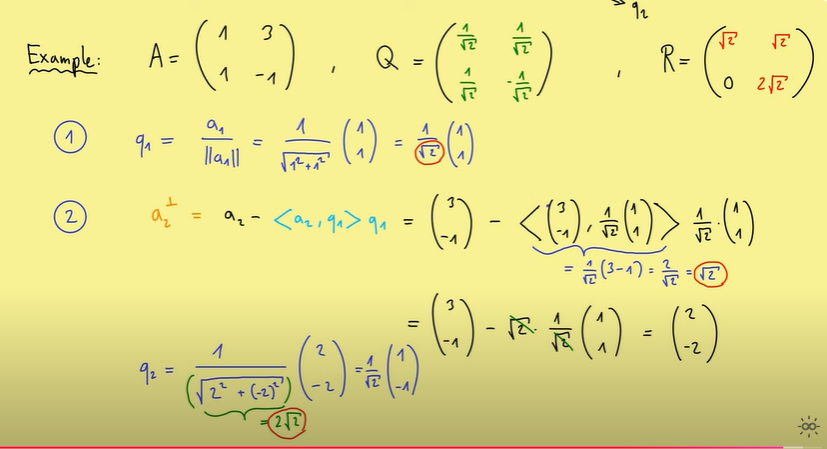 → q₂
Example: A = ( 1 3 ; 1 -1 ) , Q = ( 1/√2 1/√2 ; 1/√2 -1/√2 ) , R = ( √2 √2 ; 0 2√2 )
① q₁ = a₁/||a₁|| = 1/√(1²+1²) ( 1 ; 1 ) = 1/√2 ( 1 ; 1 )
② a₂^⊥ = a₂ - <a₂, q₁> q₁ = ( 3 ; -1 ) - < ( 3 ; -1 ), 1/√2 ( 1 ; 1 ) > 1/√2 · ( 1 ; 1 )
= 1/√2 (3-1) = 2/√2 = √2
= ( 3 ; -1 ) - √2 · 1/√2 ( 1 ; 1 ) = ( 2 ; -2 )
q₂ = 1/(√(2² + (-2)²)) ( 2 ; -2 ) = 1/√2 ( 1 ; -1 )
= 2√2